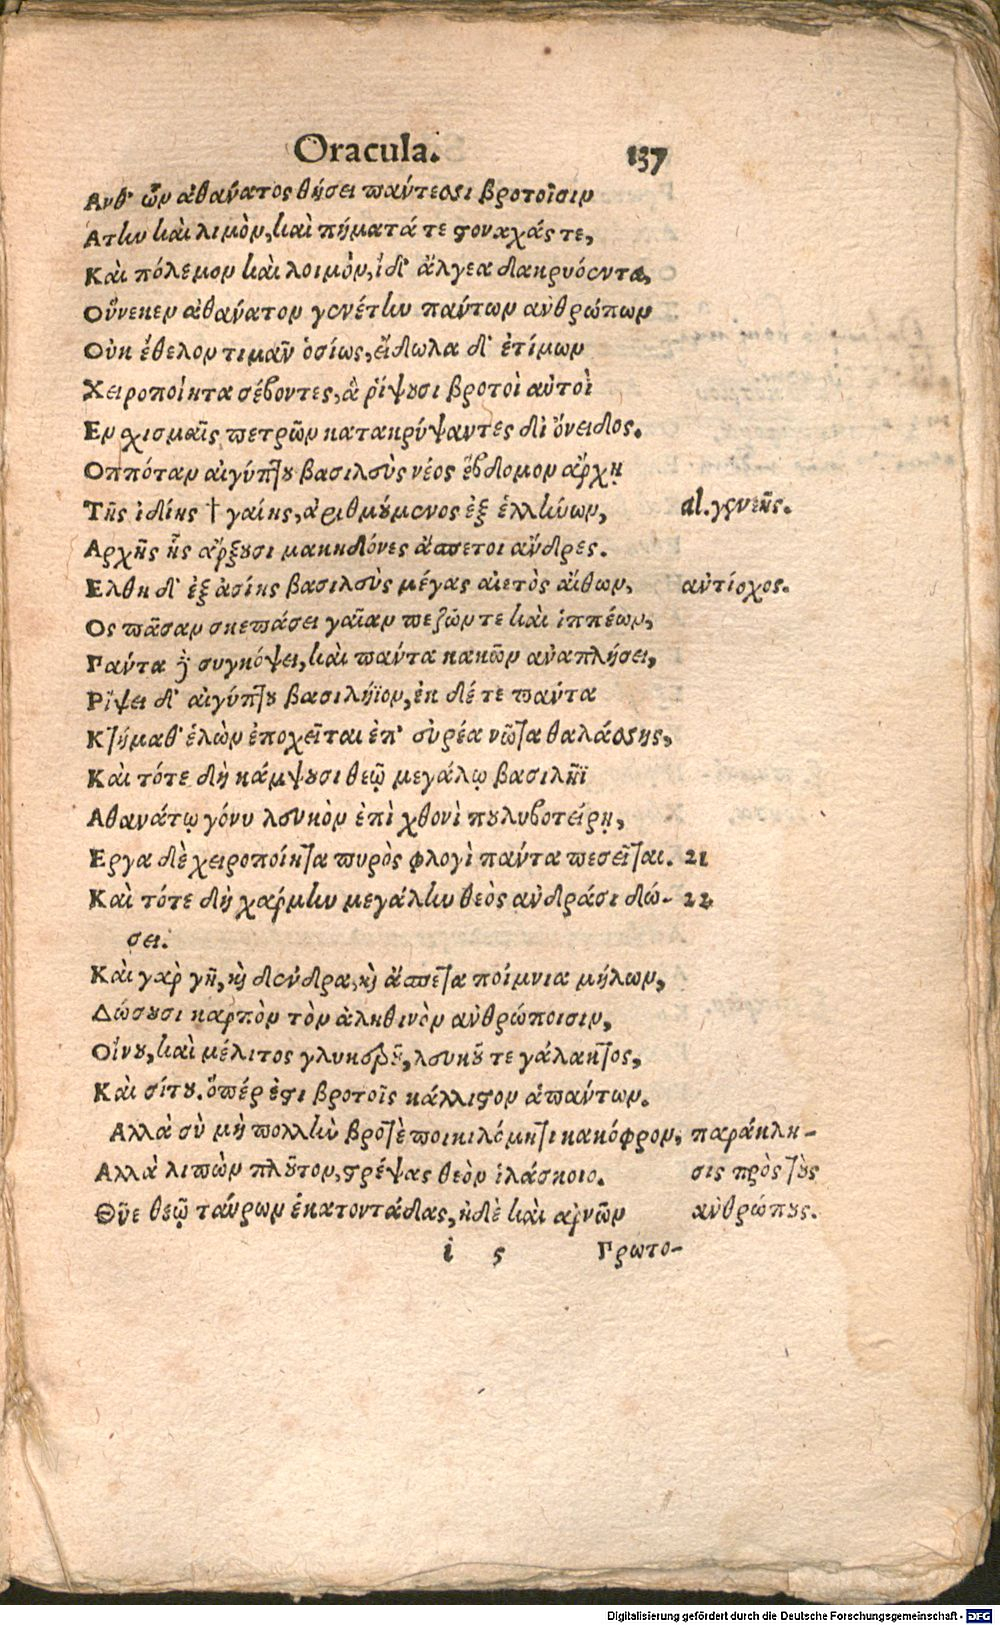 Oracula. 137
Ανθ' ὧν ἀθάνατος θήσει πάντεσσι βροτοῖσιν
Ατίω καὶ λιμὸν, καὶ πήματά τε στοναχάς τε,
Καὶ πόλεμον καὶ λοιμὸν, ἰδ' ἄλγεα δακρυόεντα,
Οὕνεκεν ἀθάνατον γενέτην πάντων ἀνθρώπων
Οὐκ ἔθελον τιμᾶν ὁσίως, εἴδωλα δ' ἐτίμων
Χειροποίητα σέβοντες, ἃ ῥίψουσι βροτοὶ αὐτοὶ
Εν σχισμαῖς πετρῶν κατακρύψαντες δι' ὄνειδος.
Οππόταν αἰγύπτου βασιλεὺς νέος ἕβδομον ἄρχῃ
Τῆς ἰδίης † γαίης, ἀριθμούμενος ἐξ ἑλλήνων, al. γενεῆς.
Αρχῆς ἧς ἄρξουσι μακηδόνες ἄσπετοι ἄνδρες.
Ελθη δ' ἐξ ἀσίης βασιλεὺς μέγας αἰετὸς αἴθων, αὐτίοχος.
Ος πᾶσαν σκεπάσει γαῖαν πεζῶν τε καὶ ἱππέων,
Γάντα δὲ συγκόψει, καὶ πάντα κακῶν ἀναπλήσει,
Ρίψει δ' αἰγύπτου βασιλήϊον, ἐκ δέ τε πάντα
Κτήμαθ' ἑλὼν ἐποχεῖται ἐπ' εὐρέα νῶτα θαλάσσης,
Καὶ τότε δὴ κάμψουσι θεῷ μεγάλῳ βασιλῆϊ
Αθανάτῳ γόνυ λευκὸν ἐπὶ χθονὶ πουλυβοτείρῃ,
Εργα δὲ χειροποίητα πυρὸς φλογὶ πάντα πεσεῖται. 21
Καὶ τότε δὴ χάρμην μεγάλην θεὸς ἀνδράσι δώ- 22
σει.
Καὶ γὰρ γῆ, καὶ δένδρα, καὶ ἄσπετα ποίμνια μήλων,
Δώσουσι καρπὸν τὸν ἀληθινὸν ἀνθρώποισιν,
Οἴνου, καὶ μέλιτος γλυκεροῦ, λευκοῦ τε γάλακτος,
Καὶ σίτου. ὅπέρ ἐστι βροτοῖς κάλλιστον ἁπάντων.
Αλλὰ σὺ μὴ πολλὺν βροτὲ ποικιλόμητι κακόφρον, παράκλη-
Αλλὰ λιπὼν πλοῦτον, στρέψας θεὸν ἱλάσκοιο. σις πρὸς τοὺς
Θῦε θεῷ ταύρων ἑκατοντάδας, ἠδὲ καὶ ἀρνῶν ἀνθρώπους.
i 5 Γρωτο-
Digitalisierung gefördert durch die Deutsche Forschungsgemeinschaft - DFG